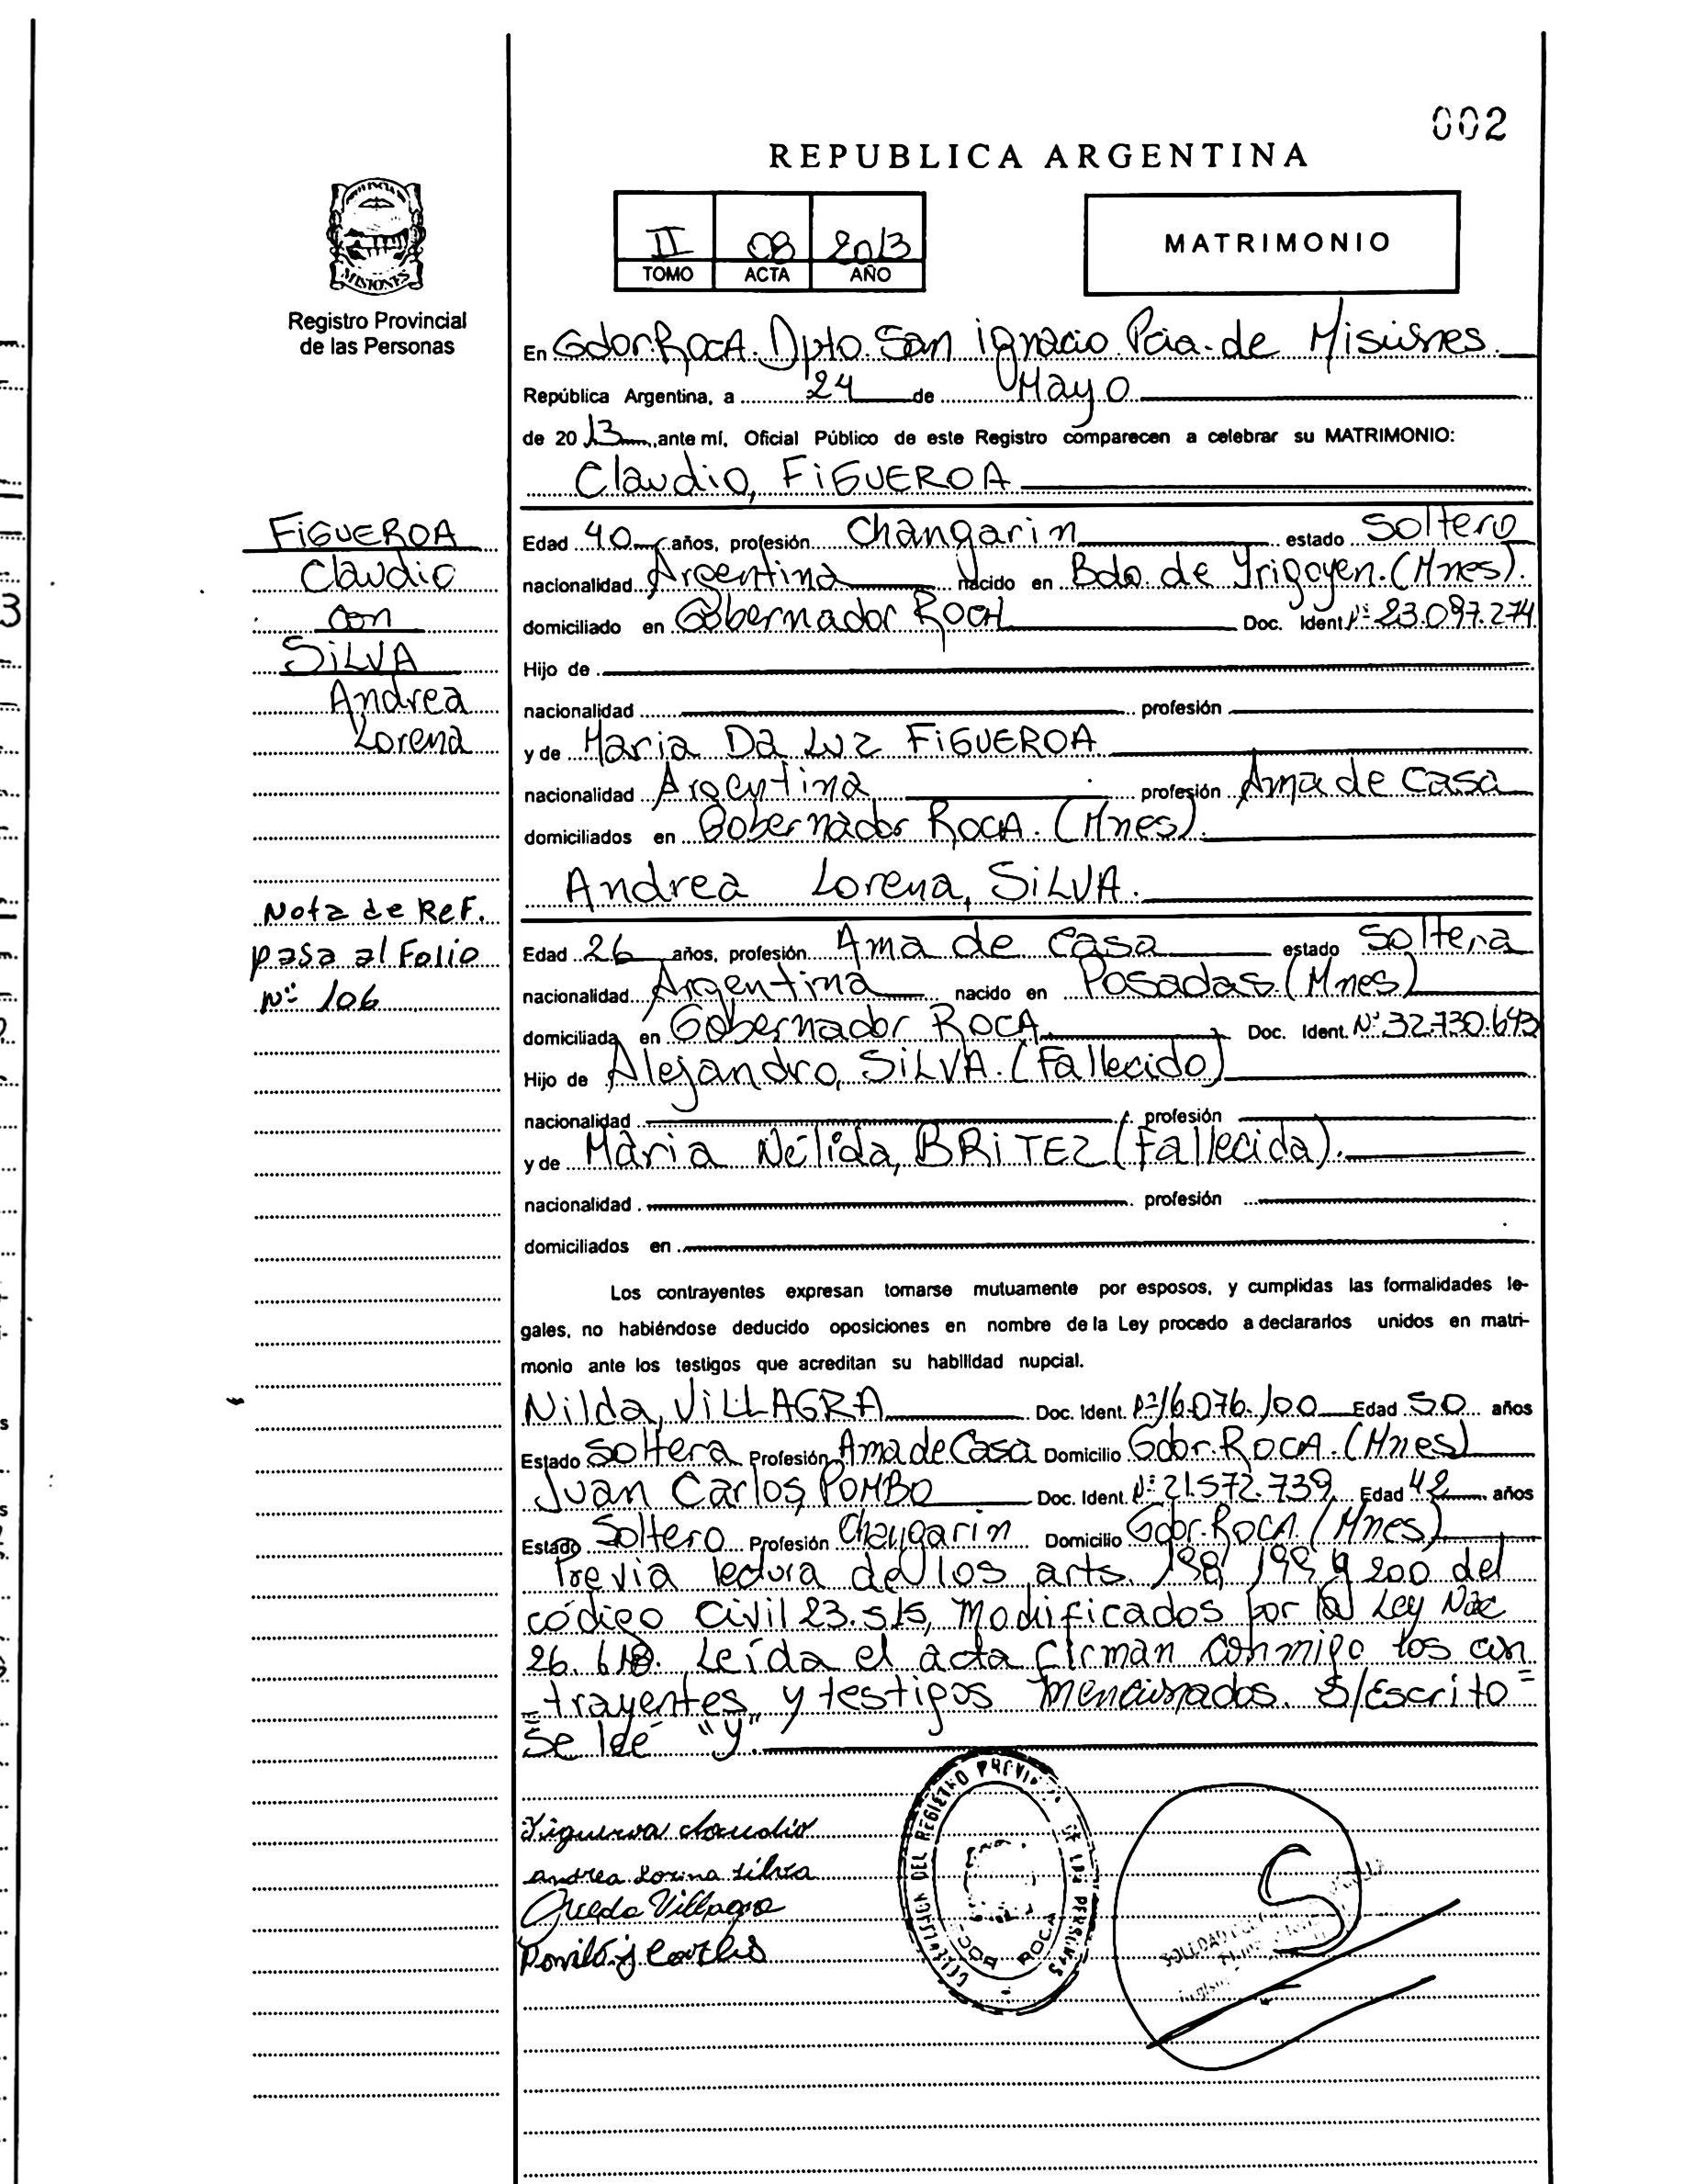 002
REPUBLICA ARGENTINA
II 08 2013
TOMO ACTA AÑO
MATRIMONIO
MISIONES
Registro Provincial
de las Personas
En Gdor. Roca. Dpto. San Ignacio Pcia. de Misiones.
República Argentina, a 24 de Mayo
de 2013, ante mí, Oficial Público de este Registro comparecen a celebrar su MATRIMONIO:
Claudio, FIGUEROA
FIGUEROA
Claudio
con
SILVA
Andrea
Lorena
Edad 40 años, profesión Changarin estado Soltero
nacionalidad Argentina nacido en Bdo. de Yrigoyen. (Mnes).
domiciliado en Gobernador ROCA Doc. Ident Nº 23.097.274
Hijo de
nacionalidad profesión
y de Maria Da Luz FIGUEROA
nacionalidad Argentina profesión Ama de Casa
domiciliados en Gobernador ROCA. (Mnes).
Andrea Lorena, SILVA.
Nota de Ref.
pasa al Folio
Nº 106
Edad 26 años, profesión Ama de Casa estado Soltera
nacionalidad Argentina nacido en Posadas (Mnes)
domiciliada en Gobernador ROCA Doc. Ident. Nº 32.730.643
Hijo de Alejandro, SILVA. (Fallecido)
nacionalidad profesión
y de María Nélida, BRITEZ (Fallecida).
nacionalidad profesión
domiciliados en
Los contrayentes expresan tomarse mutuamente por esposos, y cumplidas las formalidades le-
gales, no habiéndose deducido oposiciones en nombre de la Ley procedo a declararlos unidos en matri-
monio ante los testigos que acreditan su habilidad nupcial.
Nilda, VILLAGRA Doc. Ident. Nº 16.076.100 Edad 50 años
Estado Soltera Profesión Ama de Casa Domicilio Gdor. ROCA. (Mnes)
Juan Carlos, POMBO Doc. Ident. Nº 21.572.739 Edad 42 años
Estado Soltero Profesión Changarin Domicilio Gdor. ROCA. (Mnes)
Previa lectura de los arts. 198, 199 y 200 del
código Civil 23.515, Modificados por la Ley Nac
26.618. Leída el acta firman conmigo los con
=trayentes y testigos mencionados. S/Escrito=
Se leé "y".
Figueroa claudio
andrea Lorena silva
Villagra
DELEGACION DEL REGISTRO PROVIN. DE LAS PERSONAS
GDOR ROCA
SOLEDAD